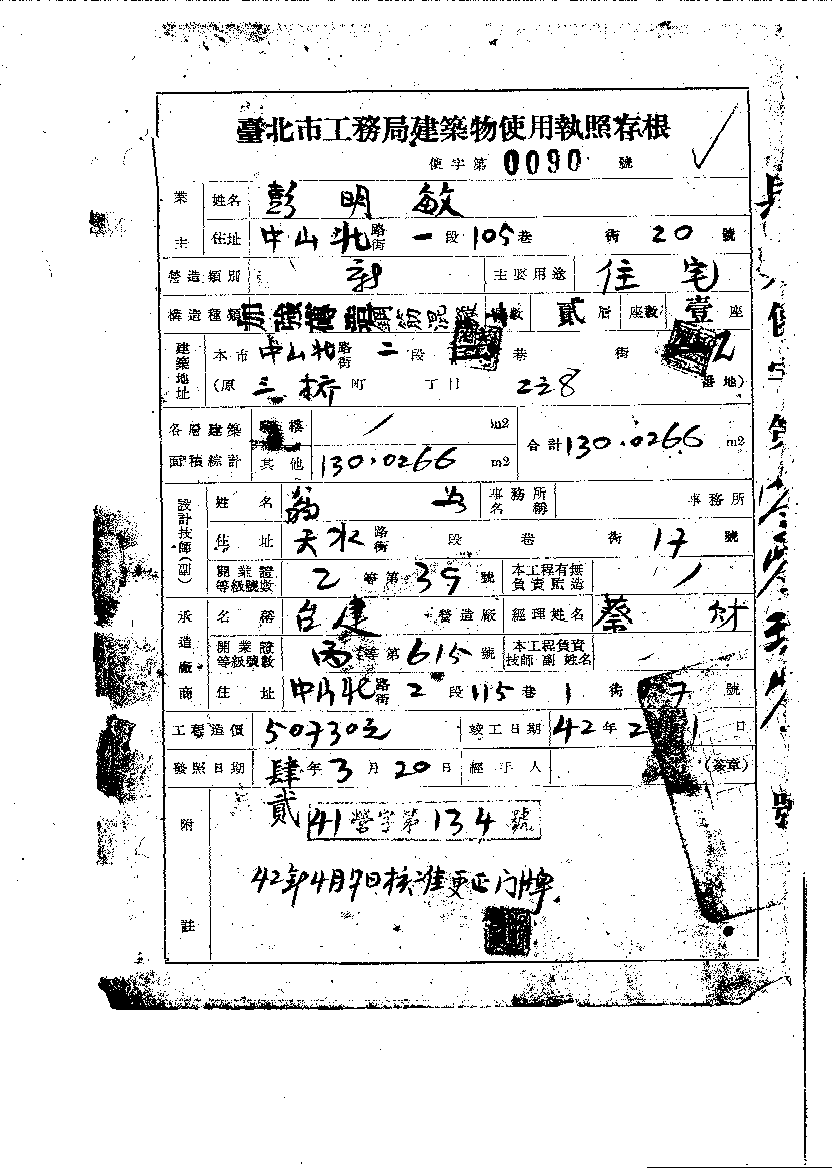 臺北市工務局建築物使用執照存根
使字第 0090 號
業主 姓名 彭明敏
住址 中山北 路街 一 段 105 巷 街 20 號
營造類別 新 主要用途 住宅
構造種類 加強磚 鋼筋混凝土 層數 貳層 座數 壹座
建築地址 本市 中山北 路街 二 段 巷 街
(原 三桥 町 丁目 228 番地)
各層建築面積綜計 / m2 合計 130.0266 m2
其他 130.0266 m2
設計技師(副) 姓名 翁 事務所名稱 事務所
住址 天水 路街 段 巷 街 17 號
開業證等級號數 乙 等第 39 號 本工程有無負責監造 /
承造廠商 名稱 台建 營造廠 經理姓名 蔡 財
開業證等級號數 丙 等第 615 號 本工程負責技師(副)姓名 /
住址 中山北 路街 2 段 115 巷 1 街 7 號
工程造價 50730元 竣工日期 42 年 2 1 日
發照日期 肆貳 年 3 月 20 日 經手人 (簽章)
附註 41營字第134號
42年4月7日核准更正门牌